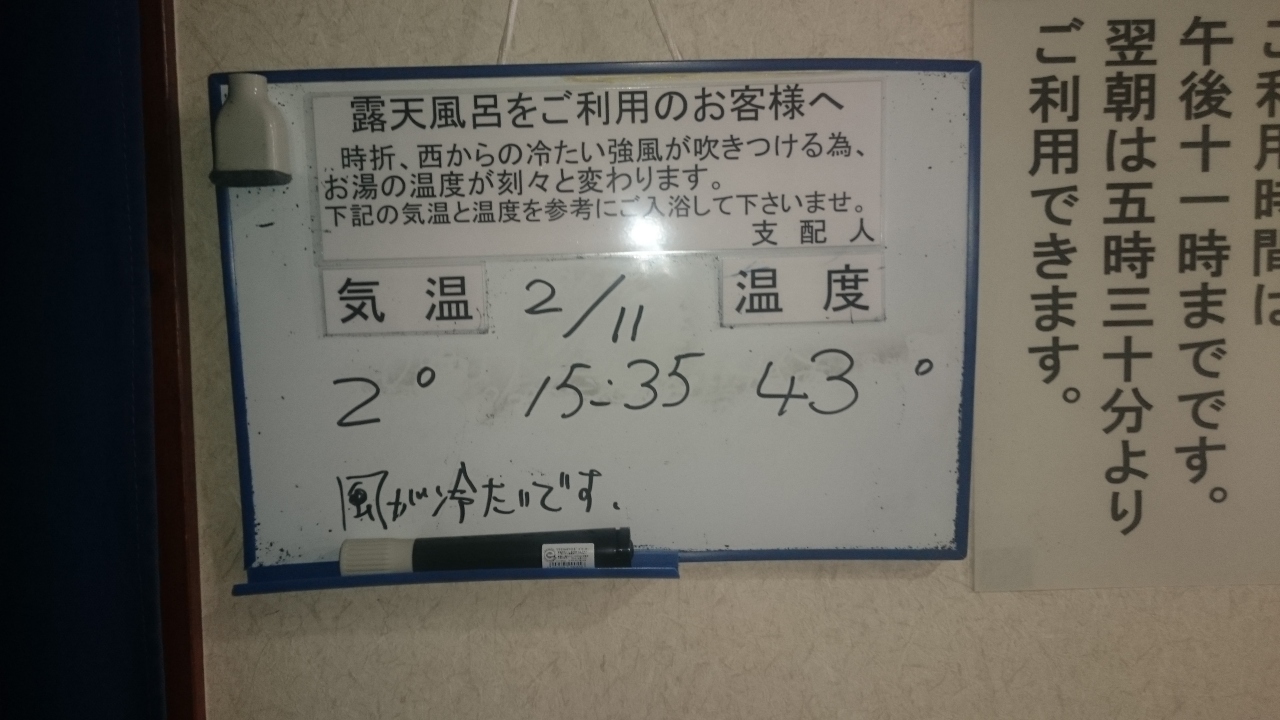 露天風呂をご利用のお客様へ
時折、西からの冷たい強風が吹きつける為、
お湯の温度が刻々と変わります。
下記の気温と温度を参考にご入浴して下さいませ。
支配人
気温 2/11 温度
2° 15:35 43°
風が冷たいです.
午後十一時までです。
翌朝は五時三十分より
ご利用できます。